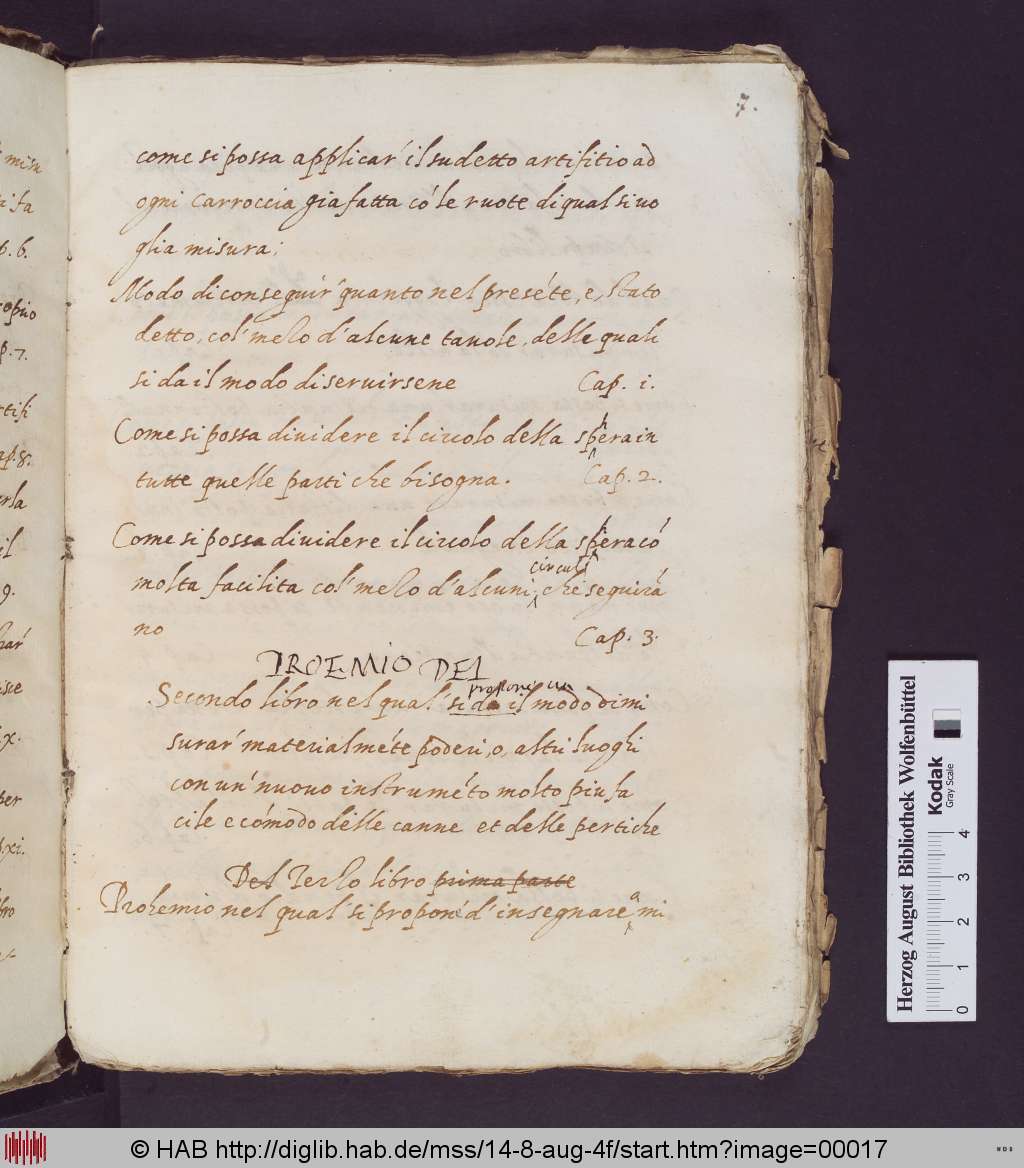 7.
come si possa applicar' il sudetto artifitio ad
ogni carroccia gia fatta có le ruote di qual si uo
glia misura:
Modo di conseguir' quanto nel preséte, e, stato
detto, col' mezo d'alcune tauole, delle quali
si da il modo di seruirsene Cap. 1.
Come si possa diuidere il circolo della sphera in
tutte quelle parti che bisogna. Cap. 2.
Come si possa diuidere il circolo della sphera có
circuli
molta facilita col' mezo d'alcuni, che seguirá
no Cap. 3.
PROEMIO DEL
Secondo libro nel qual' si da il modo di mi
surar' materialméte poderi, o, altri luoghi
con un' nuouo instruméto molto piu fa
cile e cómodo delle canne et delle pertiche
Del Terzo libro prima parte
Prohemio nel qual' si propone d'insegnare a mi
misu
p. 6.
p. 7.
ap. 8.
il
9.
x.
per
p. xi.
Herzog August Bibliothek Wolfenbüttel
Kodak
Gray Scale
0 1 2 3 4
© HAB http://diglib.hab.de/mss/14-8-aug-4f/start.htm?image=00017